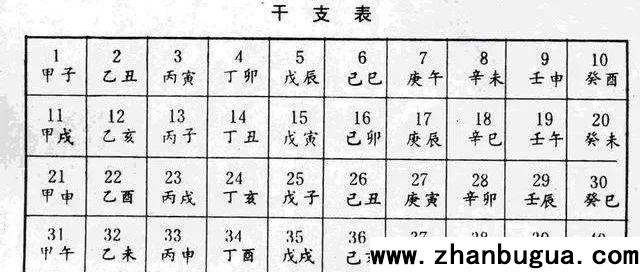 干支表
1 2 3 4 5 6 7 8 9 10
甲子 乙丑 丙寅 丁卯 戊辰 己巳 庚午 辛未 壬申 癸酉
11 12 13 14 15 16 17 18 19 20
甲戌 乙亥 丙子 丁丑 戊寅 己卯 庚辰 辛巳 壬午 癸未
21 22 23 24 25 26 27 28 29 30
甲申 乙酉 丙戌 丁亥 戊子 己丑 庚寅 辛卯 壬辰 癸巳
31 32 33 34 35 36
甲午 乙未 丙申 丁酉 戊戌 己
www.zhanbugua.com